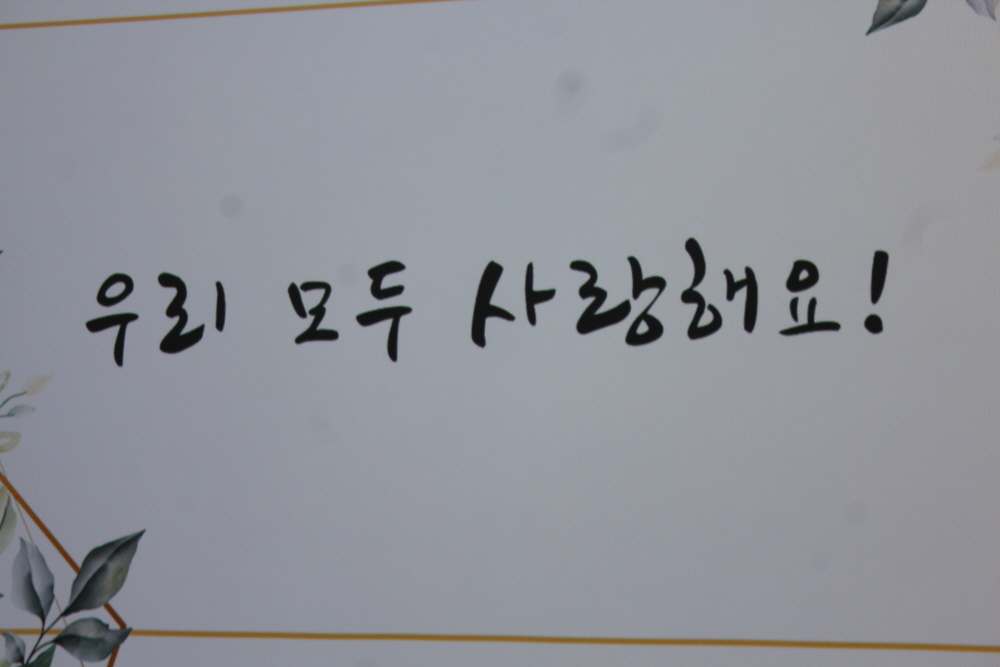 우리 모두 사랑해요!